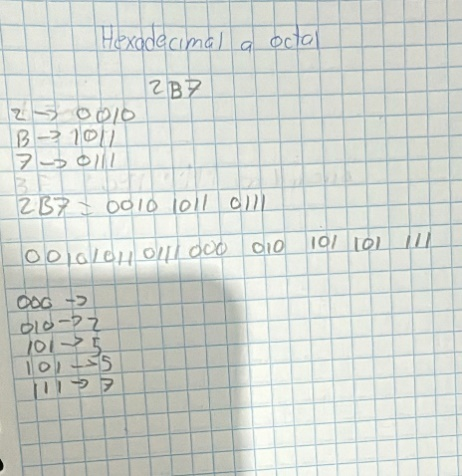 Hexadecimal a octal
2B7
2 → 0010
B → 1011
7 → 0111
2B7 = 0010 1011 0111
001010110111 000 010 101 101 111
000 →
010 → 2
101 → 5
101 → 5
111 → 7